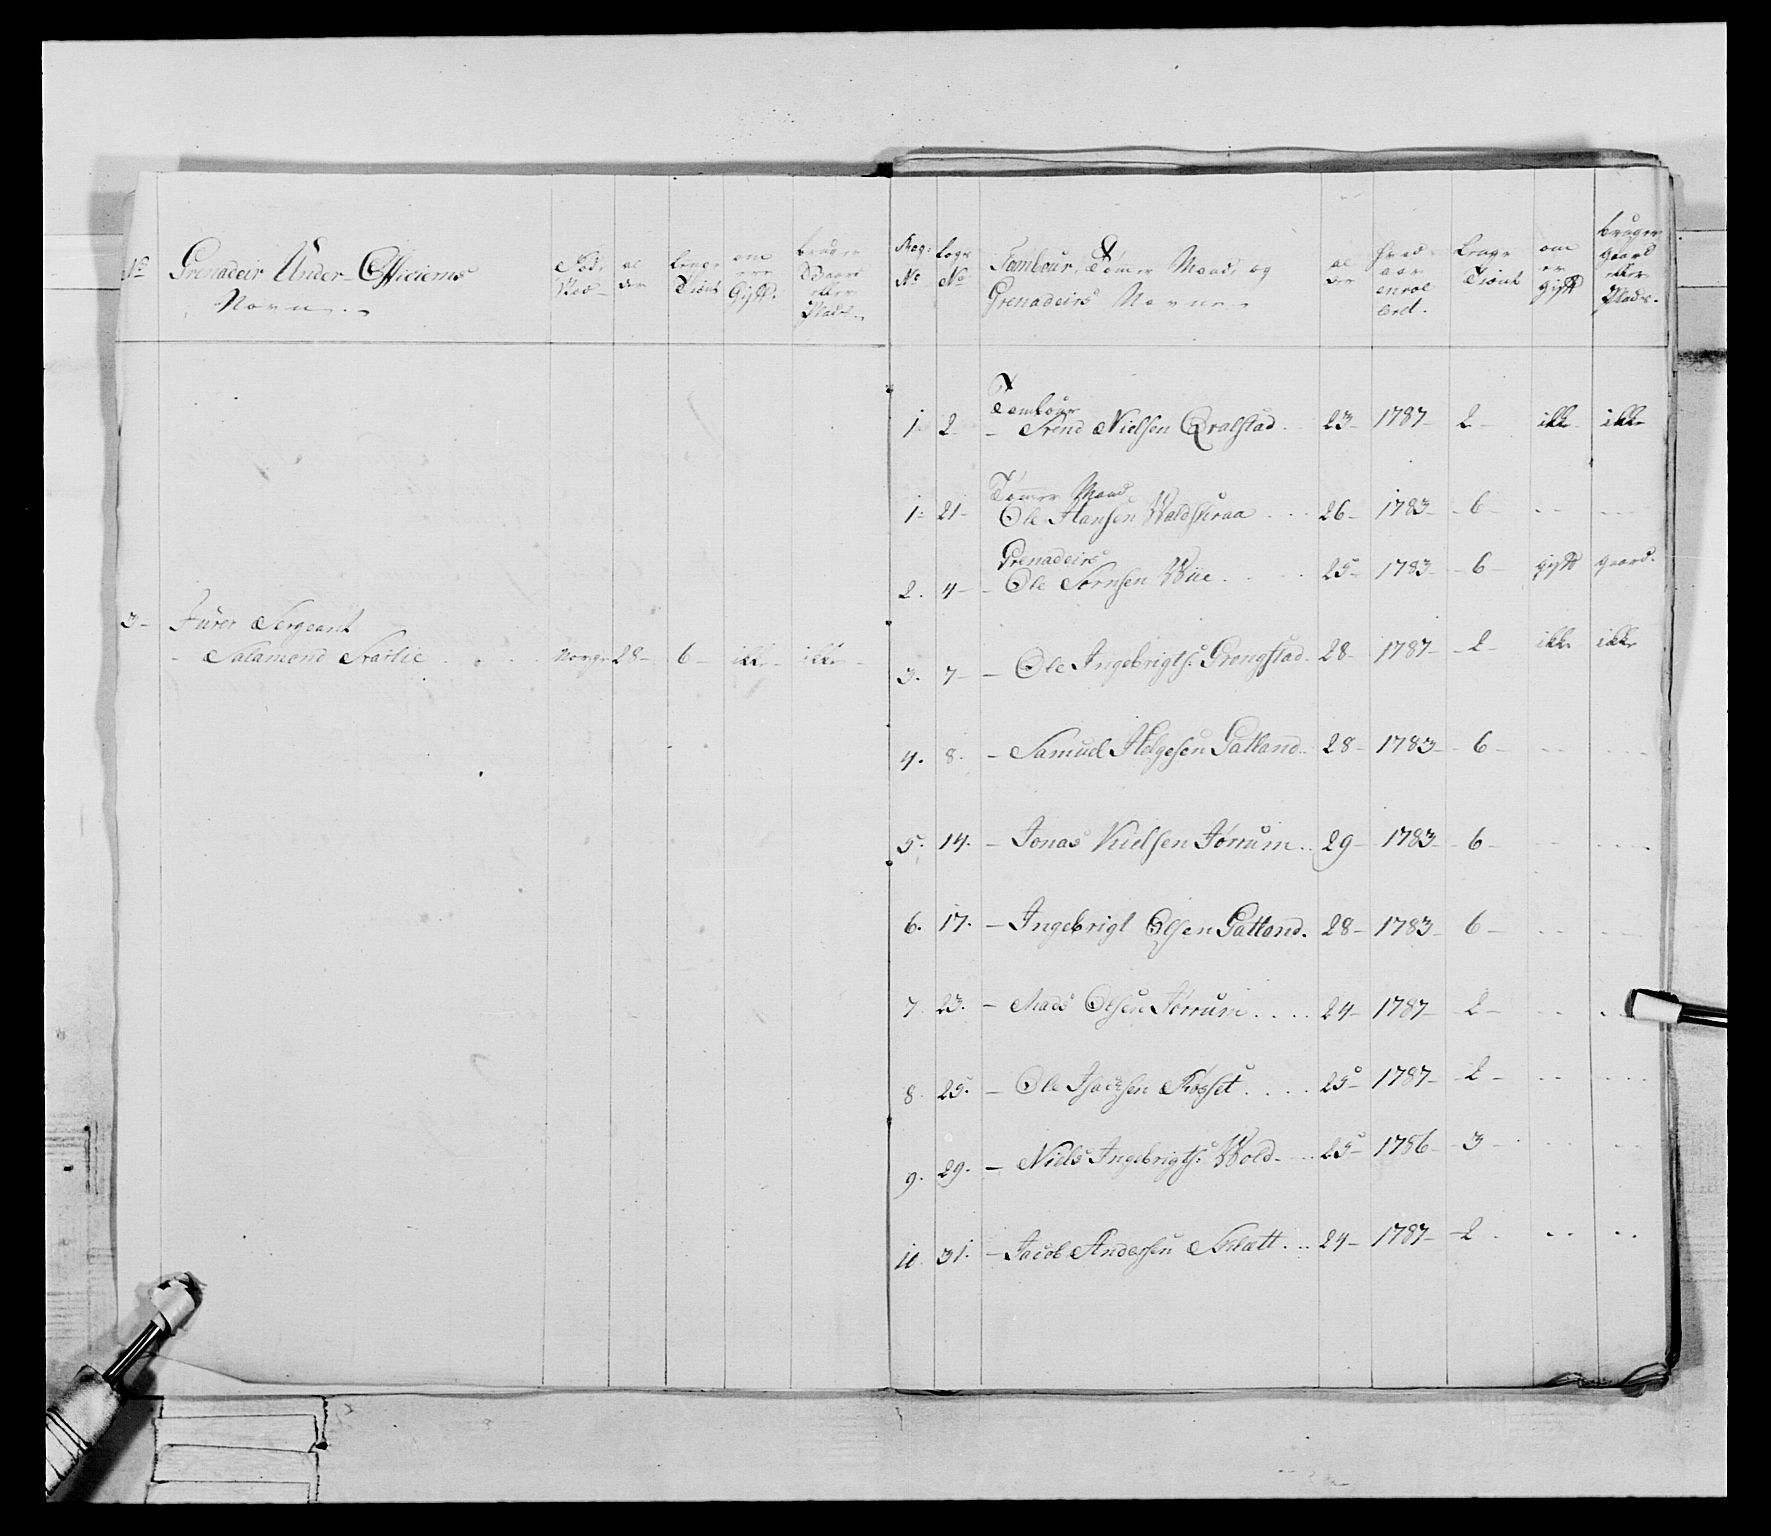 No Grenadeir Under-Officierns
Navn.
Fød
Sted
al
der
Længe
Tient
om
ere
Gift.
bruger
Gaard
eller
Plads.
3- Furer Sergeant
- Salamond
Norge 28- 6- ikke- ikke-
Rog:
No
Logs
No
Tambour, Tømer Mænd, og
Grenadeirs Navne
al
der
hvad
aar
enrol
lert.
Længe
Tient
om
er
gift
bruger
gaard
eller
Plads.
Tambour
1 2 - Svend Nielsen Qvalstad 23- 1787- 2- ikke ikke
Tømer Mand
1- 21- Ole Hansen Waldskraa 26- 1783- 6-
Grenadeirs
2. 4- - Ole Sørnsen Wiie 25- 1783- 6- gift gaard.
3. 7- - Ole Ingebrigts: Grongstad 28- 1787- 2- ikke ikke
4. 8. - Samuel Helgesen Galland 28- 1783- 6-
5. 14. - Jonas Nielsen Jørrum 29- 1783- 6-
6. 17. - Ingebrigt Olsen Galland. 28- 1783- 6-
7 23. - Mads Olsen Jørrum 24- 1787- 2-
8 25. - Ole Isachsen Røsset 25- 1787- 2-
9. 29. - Niels Ingebrigts: Wold 25- 1786- 3-
10 31. - Jacob Andersen Sklett 24- 1787- 2